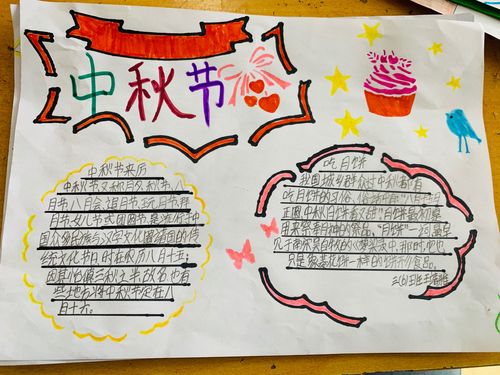 中秋节
中秋节来历
中秋节又称月夕、秋节、
月节、八月会、追月节、玩月节、拜
月节、女儿节或团圆节,是流行于中
国众多民族与汉字文化圈诸国的传
统文化节日,时在农历八月十五;
因其恰值三秋之半,故名,也有
些地方将中秋节定在八
月十六。
吃月饼
我国城乡群众过中秋都有
吃月饼的习俗,俗话中有:"八月十五
正圆,中秋月饼香又甜"。月饼最初是
用来祭奉月神的祭品,"月饼"一词,最早
见于南宋吴自牧的《梦粱录》中,那时,它也
只是象菱花饼一样的饼形食品。
三(6)班王